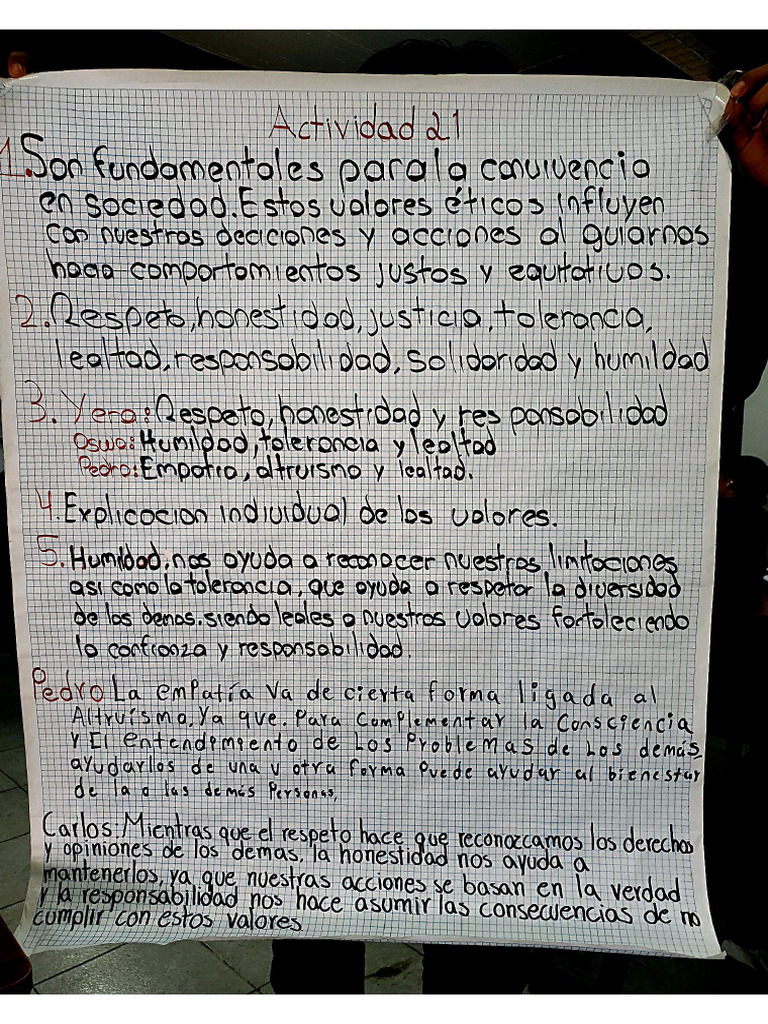 Actividad 21
1. Son fundamentales para la convivencia
en sociedad. Estos valores éticos influyen
con nuestras deciciones y acciones al guiarnos
hacia comportamientos justos y equitativos.
2. Respeto, honestidad, justicia, tolerancia,
lealtad, responsabilidad, solidaridad y humildad
3. Yera: Respeto, honestidad y responsabilidad
Oswa: Humildad, tolerancia y lealtad
Pedro: Empatia, altruismo y lealtad.
4. Explicacion individual de los valores.
5. Humildad, nos ayuda a reconocer nuestras limitaciones
asi como la tolerancia, que ayuda a respetar la diversidad
de los demas, siendo leales a nuestros valores fortaleciendo
la confianza y responsabilidad.
Pedro La empatía va de cierta forma ligada al
Altruismo, ya que. Para complementar la consciencia
y El entendimiento de Los Problemas de Los demás
ayudarlos de una u otra forma Puede ayudar al bienestar
de la o las demás Personas,
Carlos: Mientras que el respeto hace que reconozcamos los derechos
y opiniones de los demas, la honestidad nos ayuda a
mantenerlos, ya que nuestras acciones se basan en la verdad
y la responsabilidad nos hace asumir las consecuencias de no
cumplir con estos valores